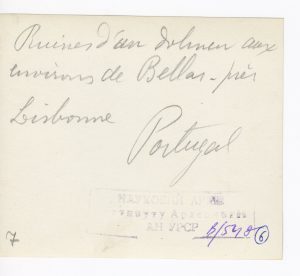 Ruines d'un dolmen aux
environs de Bellas - près
Lisbonne
Portugal
НАУКОВИЙ АРХІВ
АН УРСР
Б/548
6
7